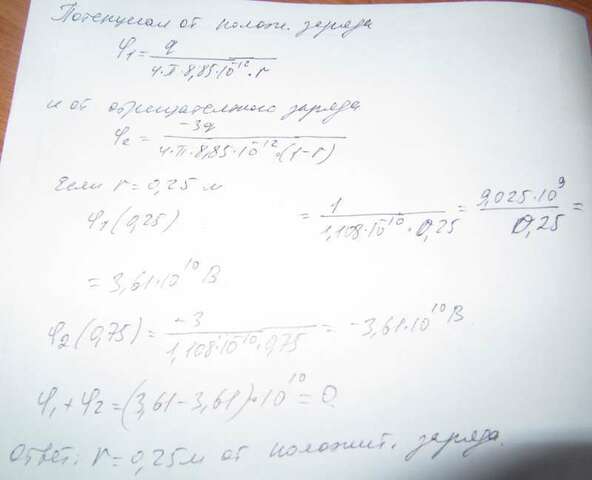 Потенциал от полож. заряда
φ₁ = q / (4·π·8,85·10⁻¹²·r)
и от отрицательного заряда
φ₂ = -3q / (4·π·8,85·10⁻¹²·(1-r))
Если r = 0,25 м
φ₁(0,25) = 1 / (1,108·10⁻¹⁰·0,25) = 9,025·10⁹ / 0,25 =
= 3,61·10¹⁰ В
φ₂(0,75) = -3 / (1,108·10⁻¹⁰·0,75) = -3,61·10¹⁰ В
φ₁+φ₂ = (3,61-3,61)·10¹⁰ = 0
Ответ: r = 0,25 м от положит. заряда.